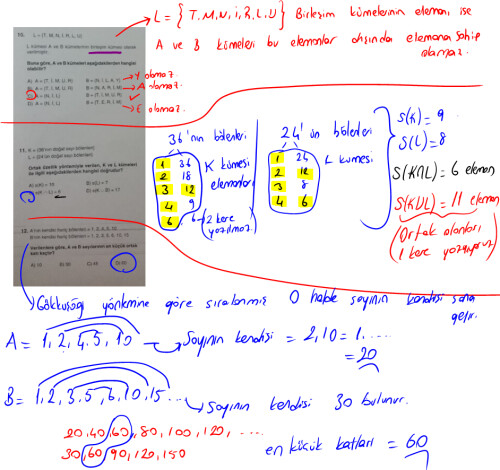 10. L = {T, M, N, İ, R, L, U}
L kümesi A ve B kümelerinin birleşim kümesi olarak
Buna göre, A ve B kümeleri aşağıdakilerden hangisi olabilir?
A) A = {T, İ, M, U, R} B = {N, İ, L, A, Y}
B = {N, A, R, M, İ}
A = {N, İ, L} B = {T, İ, M, U, R}
B = {T, E, R, İ, M}
Y olamaz
A olamaz.
E olamaz.
L = {T, M, N, İ, R, L, U} Birleşim kümelerinin elemanı ise
A ve B kümeleri bu elemanlar dışında elemana sahip
olamaz.
11. K = {36'nın doğal sayı bölenleri}
L = {24'ün doğal sayı bölenleri}
Ortak özellik yöntemiyle verilen, K ve L kümeleri ile ilgili aşağıdakilerden hangisi doğrudur?
36'nın bölenleri
1 36
2 18
3 12
4 9
6 6
K kümesi
elemanları
2 kere
yazılmaz.
24'ün bölenleri
1 24
2 12
3 8
4 6
L kümesi
S(K) = 9
S(L) = 8
S(K∩L) = 6 eleman
S(K∪L) = 11 eleman
(Ortak olanları
1 kere yazıyoruz)
12. A'nın
1, 2, 4, 5, 10
1, 2, 3, 5, 6, 10, 15
Verilenlere göre, A ve B sayılarının en küçük ortak katı kaçtır?
Gökkuşağı yöntemine göre sıralanmış O halde sayının kendisi sona
gelir.
A = 1, 2, 4, 5, 10 Sayının kendisi = 2, 10 = 1, ....
= 20
B = 1, 2, 3, 5, 6, 10, 15 ... Sayının kendisi 30 bulunur.
20, 40, 60, 80, 100, 120, ....
30, 60, 90, 120, 150
en küçük katları = 60